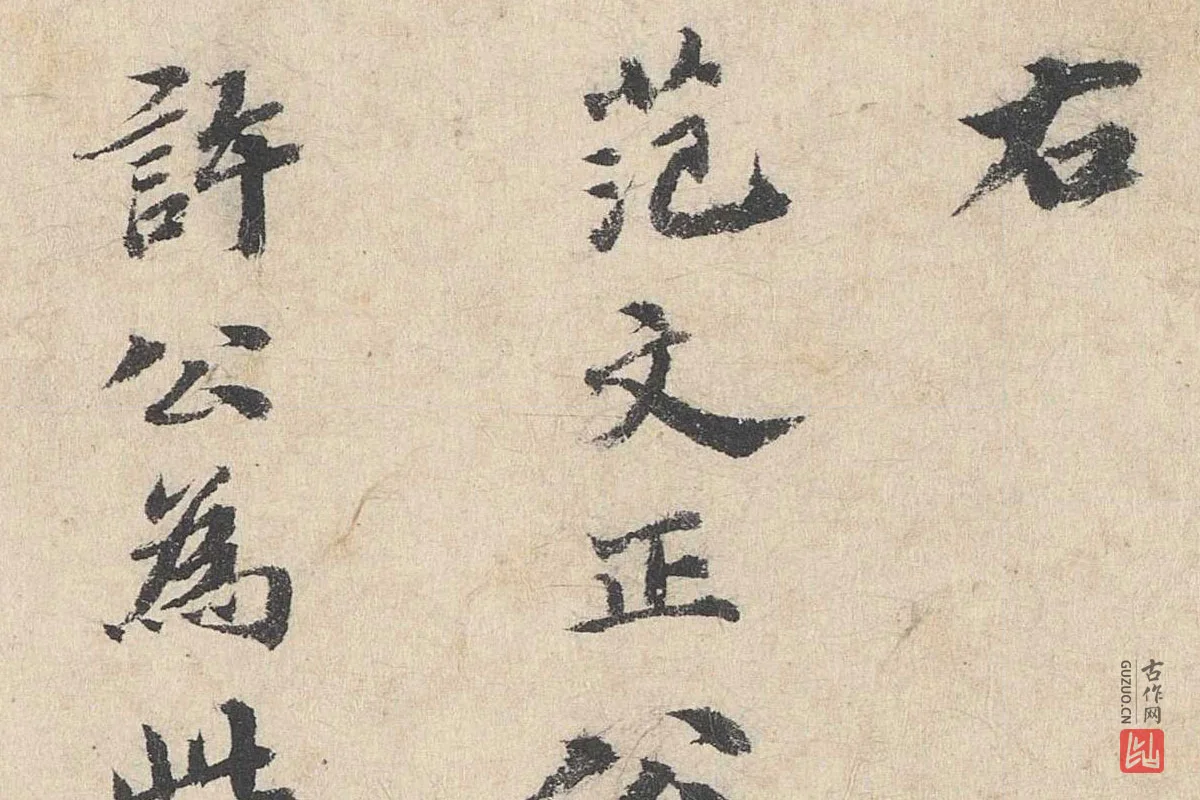 右
范文正公
許公為
古作网
GUZUO.CN